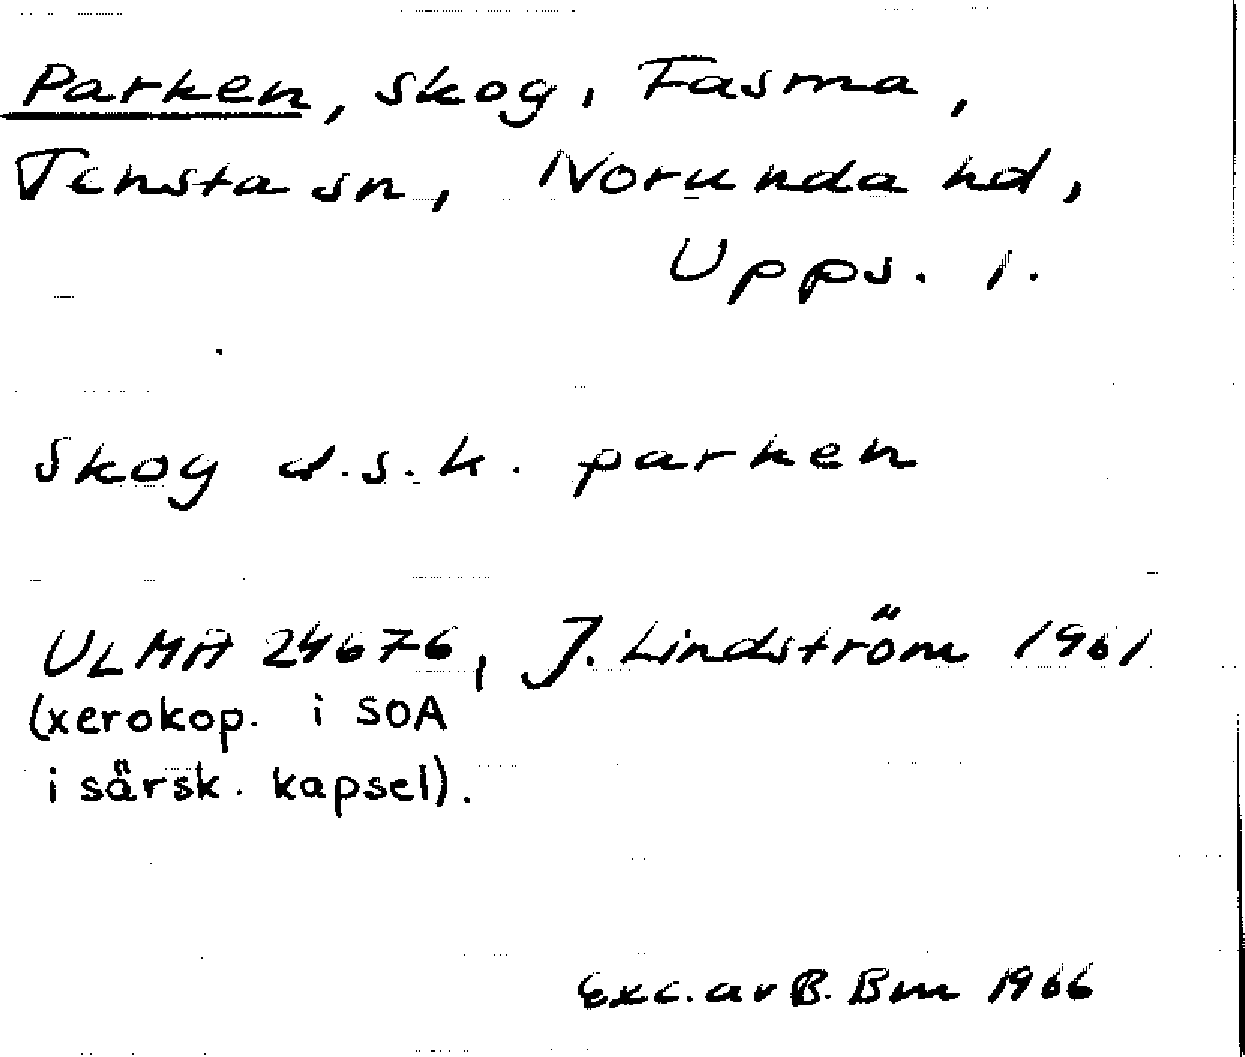 Parken, skog, Fasma,
Tensta sn, Norunda hd,
Upps. l.
Skog d.s.k. parken
ULMA 24676, J. Lindström 1961
(xerokop. i SOA
i särsk. kapsel).
Exc. av B. Bm 1966